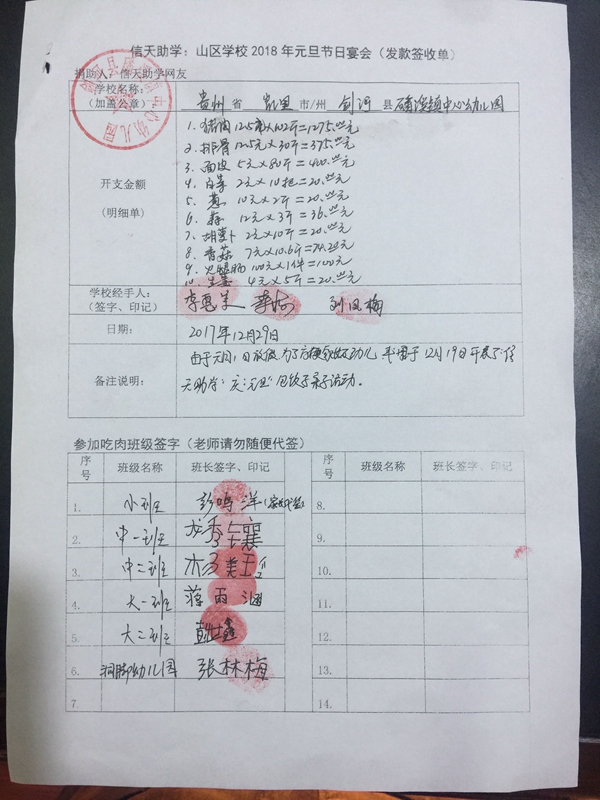 信天助学：山区学校 2018 年元旦节日宴会（发款签收单）
捐助人：信天助学网友
学校名称：
（加盖公章）
贵州 省 凯里 市/州 剑河 县 磻溪镇中心幼儿园
开支金额
（明细单）
1. 猪肉 12.5元×102斤=1275.00元
2. 排骨 12.5元×30斤=375.00元
3. 面皮 5元×80斤=400.00元
4. 白菜 2元×10把=20.00元
5. 葱 10元×2斤=20.00元
6. 蒜 12元×3斤=36.00元
7. 胡萝卜 2元×10斤=20.00元
8. 香菇 7元×10.6斤=74.20元
9. 火腿肠 100元×1件=100元
10. 生姜 4元×5斤=20.00元
学校经手人：
（签字、印记）
李惠美 李 刘凤梅
日期：
2017年12月29日
备注说明：
由于元月1日放假，为了 幼儿 于12月19日开展了“信
天助学”庆“元旦”包饺子亲子活动。
参加吃肉班级签字（老师请勿随便代签）
序号 班级名称 班长签字、印记 序号 班级名称 班长签字、印记
1. 小班 彭鸣洋 8.
2. 中一班 龙秀 9.
3. 中二班 杨美 10.
4. 大一班 蒋雨涵 11.
5. 大二班 彭 鑫 12.
6. 洞脚幼儿园 张林梅 13.
7. 14.